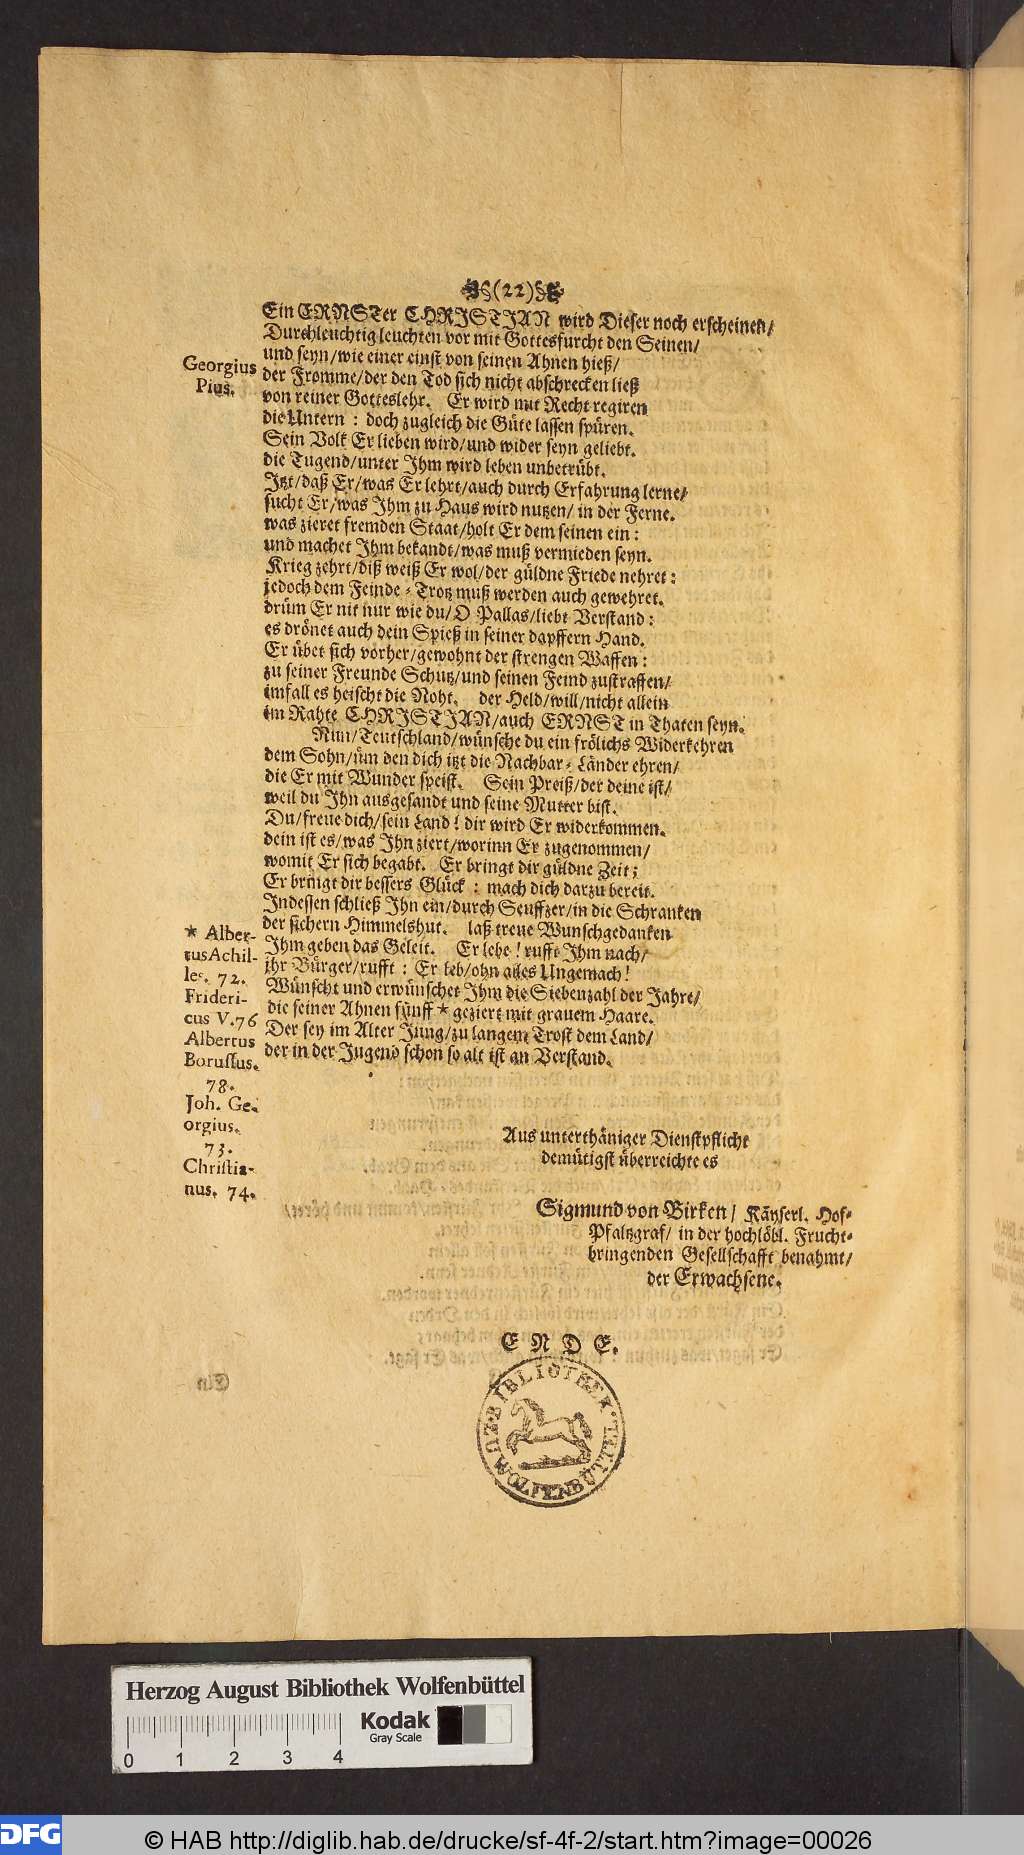 §(22)§
Ein ERNSTer CHRISTIAN wird Dieser noch erscheinen/
Durchleuchtig leuchten vor mit Gottesfurcht den Seinen/
und seyn/wie einer einst von seinen Ahnen hieß/
Georgius
Pius.
der Fromme/der den Tod sich nicht abschrecken ließ
von reiner Gotteslehr. Er wird mit Recht regiren
die Untern : doch zugleich die Güte lassen spüren.
Sein Volk Er lieben wird/und wider seyn geliebt.
die Tugend/unter Ihm wird leben unbetrübt.
Itzt/daß Er/was Er lehrt/auch durch Erfahrung lerne/
sucht Er/was Ihm zu Haus wird nutzen/ in der Ferne.
was zieret fremden Staat/holt Er dem seinen ein :
und machet Ihm bekandt/was muß vermieden seyn.
Krieg zehrt/diß weiß Er wol/der güldne Friede nehret :
jedoch dem Feinde-Trotz muß werden auch gewehret.
drüm Er nit nur wie du/O Pallas/liebt Verstand :
es drönet auch dein Spieß in seiner dapffern Hand.
Er übet sich vorher/gewohnt der strengen Waffen :
zu seiner Freunde Schutz/und seinen Feind zustraffen/
imfall es heischt die Noht. der Held/will/nicht allein
im Rahte CHRISTIAN/auch ERNST in Thaten seyn.
Nun/Teutschland/wünsche du ein frölichs Widerkehren
dem Sohn/üm den dich itzt die Nachbar-Länder ehren/
die Er mit Wunder speist. Sein Preiß/der deine ist/
weil du Ihn ausgesandt und seine Mutter bist.
Du/freue dich/sein Land! dir wird Er widerkommen.
dein ist es/was Ihn ziert/worinn Er zugenommen/
womit Er sich begabt. Er bringt dir güldne Zeit;
Er bringt dir bessers Glück : mach dich darzu bereit.
Indessen schließ Ihn ein/durch Seuffzer/in die Schranken
der sichern Himmelshut. laß treue Wunschgedanken
Ihm geben das Geleit. Er lebe! rufft Ihm nach/
jhr Bürger/rufft : Er leb/ohn alles Ungemach!
Wünscht und erwünschet Ihm die Siebenzahl der Jahre/
die seiner Ahnen fünff * geziert mit grauem Haare.
Der sey im Alter Jung/zu langem Trost dem Land/
der in der Jugend schon so alt ist an Verstand.
* Alber-
tus Achil-
les. 72.
Frideri-
cus V. 76
Albertus
Borussus.
78.
Joh. Ge-
orgius.
73.
Christia-
nus. 74.
Aus unterthäniger Dienstpflicht
demütigst überreichte es
Sigmund von Birken/ Käyserl. Hof-
Pfaltzgraf/ in der hochlöbl. Frucht-
bringenden Gesellschafft benahmt/
der Erwachsene.
E N D E.
BIBLIOTHEK ZU WOLFENBÜTTEL
Herzog August Bibliothek Wolfenbüttel
Kodak
Gray Scale
0 1 2 3 4
DFG
© HAB http://diglib.hab.de/drucke/sf-4f-2/start.htm?image=00026